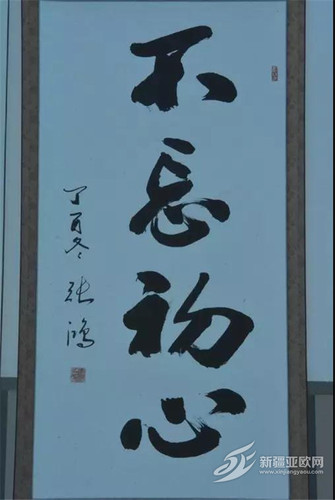 不忘初心
丁酉冬 张鸿
新疆亚欧网
www.xinjiangyaou.com